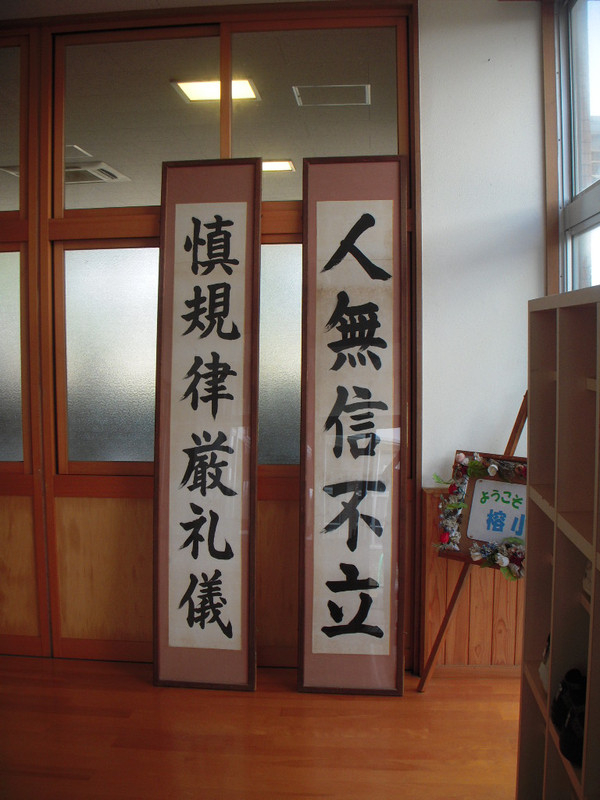 人無信不立
慎規律厳礼儀
ようこそ
榕小